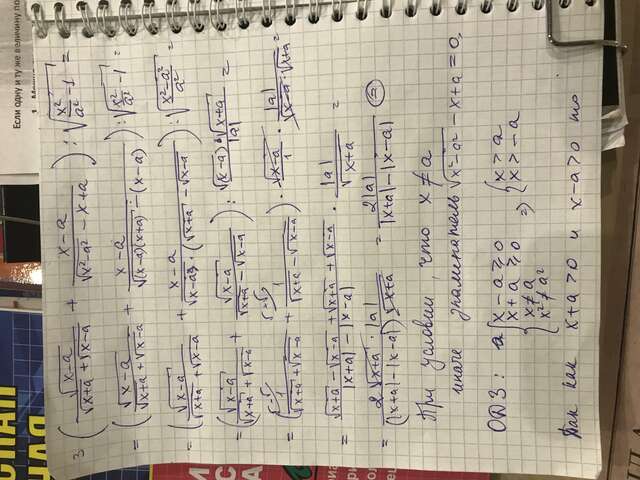 Если одну и ту же величину
3 (√(x-a) / (√(x+a) + √(x-a)) + (x-a) / (√(x²-a²) - x+a)) : √(x²/a² - 1) =
= (√(x-a) / (√(x+a) + √(x-a)) + (x-a) / (√((x-a)(x+a)) - (x-a))) : √(x²/a² - 1) =
= (√(x-a) / (√(x+a) + √(x-a)) + (x-a) / (√(x-a) · (√(x+a) - √(x-a)))) : √((x²-a²)/a²) =
= (√(x-a) / (√(x+a) + √(x-a)) + √(x-a) / (√(x+a) - √(x-a))) : (√(x-a) · √(x+a)) / |a| =
= (1 / (√(x+a) + √(x-a)) + 1 / (√(x+a) - √(x-a))) · √(x-a) / 1 · |a| / (√(x-a) · √(x+a)) =
= (√(x+a) - √(x-a) + √(x+a) + √(x-a)) / (|x+a| - |x-a|) · |a| / √(x+a) =
= 2√(x+a) · |a| / ((|x+a| - |x-a|) √(x+a)) = 2|a| / (|x+a| - |x-a|) =
При условии, что x ≠ a
иначе знаменатель √(x²-a²) - x+a = 0,
ОДЗ: { x-a ≥ 0 x+a ≥ 0 x ≠ a x² ≠ a² ⇒ { x > a x > -a
Так как x+a > 0 и x-a > 0 то